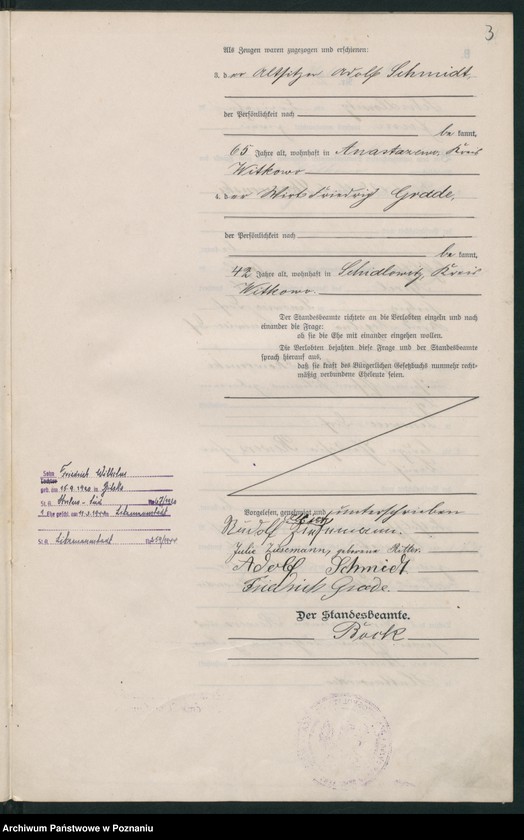 3
Als Zeugen waren zugezogen und erschienen:
3. der Altsitzer Adolf Schmidt,
der Persönlichkeit nach
be kannt,
65 Jahre alt, wohnhaft in Anastazewo, Kreis
Witkowo
4. der Wirt Friedrich Grade,
der Persönlichkeit nach
be kannt,
42 Jahre alt, wohnhaft in Schidlowitz, Kreis
Witkowo.
Der Standesbeamte richtete an die Verlobten einzeln und nach
einander die Frage:
ob sie die Ehe mit einander eingehen wollen.
Die Verlobten bejahten diese Frage und der Standesbeamte
sprach hierauf aus,
daß sie kraft des Bürgerlichen Gesetzbuchs nunmehr recht-
mäßig verbundene Eheleute seien.
Vorgelesen, genehmigt und unterschrieben
Rudolf
Julie Zinsemann, geborene Ritter.
Adolf Schmidt
Friedrich Grade.
Der Standesbeamte.
Böck
Sohn Friedrich Wilhelm
Tochter
geb. am 15.9.1920 in
St. A. No 67/1920
1. Ehe geschl. am in Litzmannstadt
St. A. Litzmannstadt
Archiwum Państwowe w Poznaniu